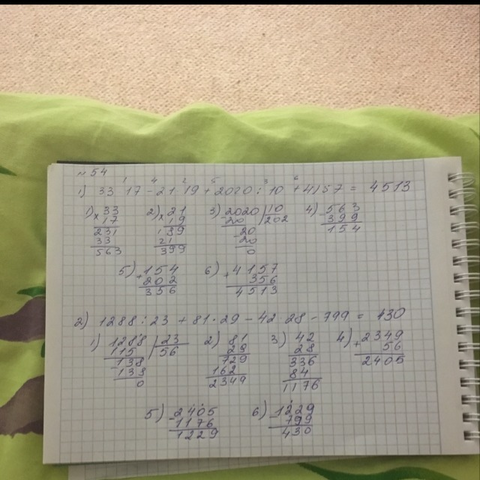 № 54
1 4 2 5 3 6
1) 33 · 17 - 21 · 19 + 2020 : 10 + 4157 = 4513
1) × 33 2) × 21 3) 2020 | 10 4) 563
17 19 20 202 399
231 189 20 154
33 21 20
563 399 0
5) + 154 6) + 4157
202 356
356 4513
2) 1288 : 23 + 81 · 29 - 42 · 28 - 799 = 430
1) 1288 | 23 2) 81 3) 42 4) + 2349
115 56 29 28 56
138 729 336 2405
138 162 84
0 2349 1176
5) - 2405 6) - 1229
1176 799
1229 430